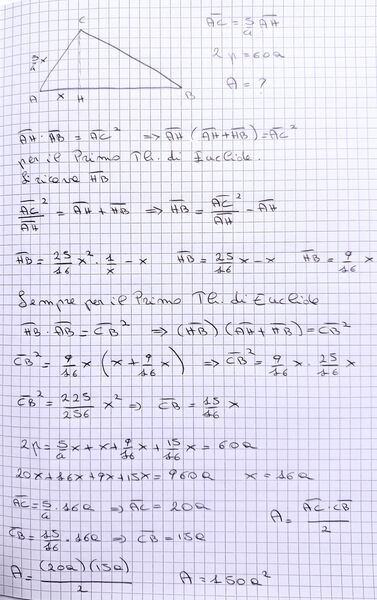 C
5/4 x
A x H B
AC = 5/4 AH
2p = 60a
A = ?
AH · HB = AC² ⇒ AH (AH + HB) = AC²
per il Primo Th. di Euclide.
Si ricava HB
AC²/AH = AH + HB ⇒ HB = AC²/AH - AH
HB = 25/16 x² · 1/x - x HB = 25/16 x - x HB = 9/16 x
Sempre per il Primo Th. di Euclide
HB · AB = CB² ⇒ (HB) (AH + HB) = CB²
CB² = 9/16 x (x + 9/16 x) ⇒ CB² = 9/16 x · 25/16 x
CB² = 225/256 x² ⇒ CB = 15/16 x
2p = 5/4 x + x + 9/16 x + 15/16 x = 60a
20x + 16x + 9x + 15x = 960a x = 16a
AC = 5/4 · 16a ⇒ AC = 20a
A = AC · CB / 2
CB = 15/16 · 16a ⇒ CB = 15a
A = (20a) (15a) / 2 A = 150a²